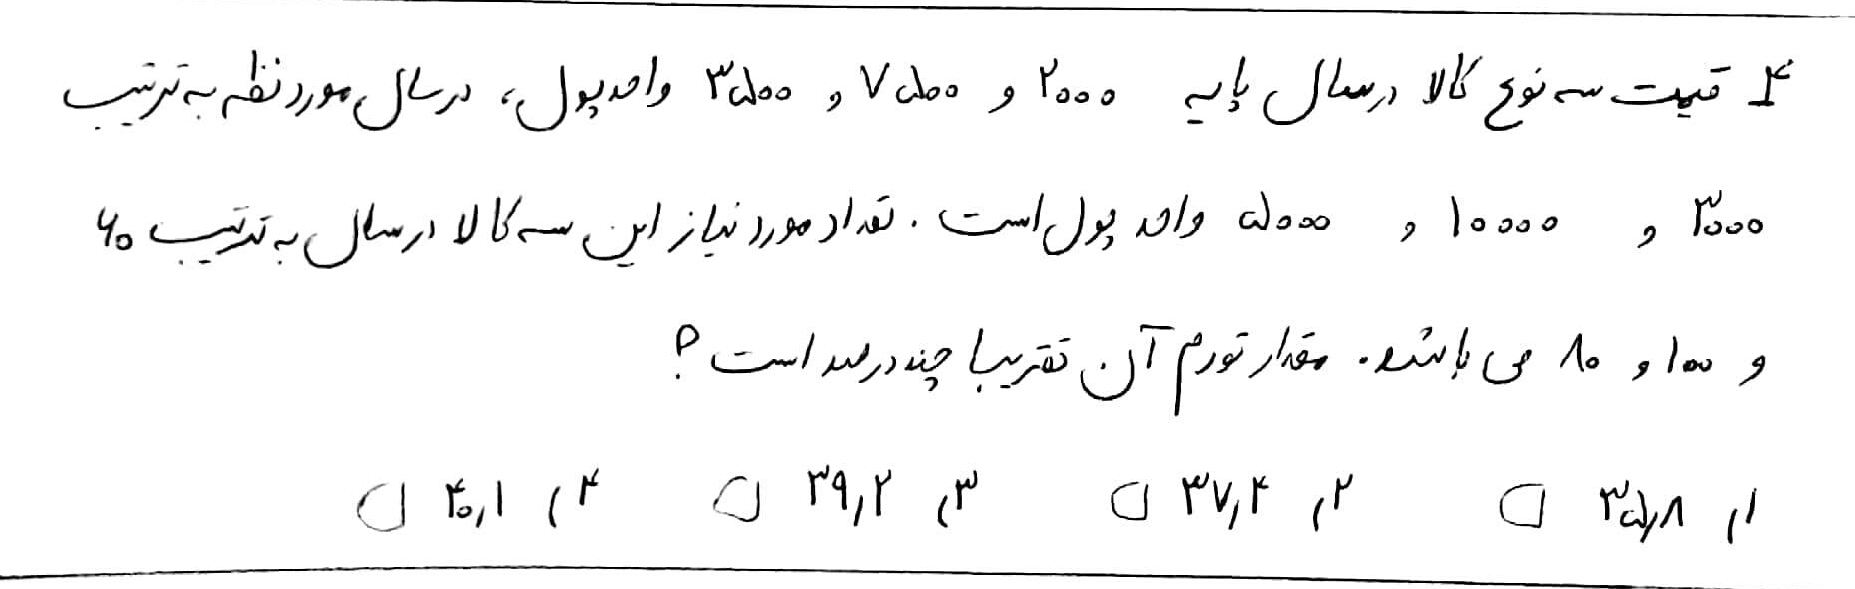 ۴ قیمت سه نوع کالا در سال پایه ۲۰۰۰ و ۷۵۰۰ و ۳۵۰۰ واحد پول، در سال مورد نظر به ترتیب
۳۰۰۰ و ۱۰۰۰۰ و ۵۰۰۰ واحد پول است. تعداد مورد نیاز این سه کالا در سال به ترتیب ۶۰
و ۱۰۰ و ۸۰ می باشد. مقدار تورم آن تقریبا چند درصد است؟
۱) ۳۵٫۸ ۲) ۳۷٫۴ ۳) ۳۹٫۲ ۴) ۴۰٫۱